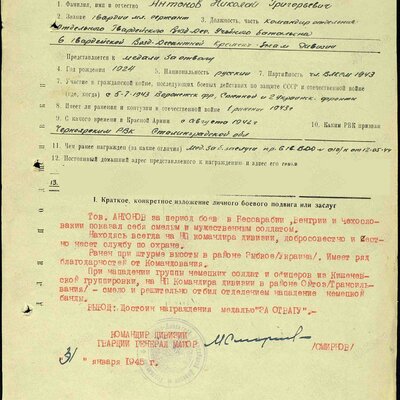 1. Фамилия, имя и отчество Антонов Николай Григорьевич
2. Звание гвардии мл. сержант 3. Должность, часть командир отделения
отдельного гвардейского Возд-Дес. Учебного батальона
6 гвардейской Возд-Десантной Кремен. Знам. Дивизии
Представляется к медали За отвагу
4. Год рождения 1924 5. Национальность русский 7. Партийность чл. ВЛКСМ 1943
7. Участие в гражданской войне, последующих боевых действиях по защите СССР и отечественной войне
(где, когда) с 5-7-1943 Воронеж. фр., Степной и 2 Украинск. фронты
8. Имеет ли ранения и контузии в отечественной войне 1943г
9. С какого времени в Красной Армии с августа 1942г 10. Каким РВК призван
Черноярским РВК Сталинградской обл
11. Чем ранее награжден (за какие отличия) Мед. За б. заслуги пр. 6 гв. ВДД от 12-05-44
12. Постоянный домашний адрес представляемого к награждению и адрес его семьи
13.
I. Краткое, конкретное изложение личного боевого подвига или заслуг
Тов. АНТОНОВ за период боев в Бессарабии, Венгрии и Чехосло-
вакии показал себя смелым и мужественным солдатом.
Находясь всегда на НП командира дивизии, добросовестно и чест-
но несет службу по охране.
Ранен при штурме высоты в районе Рыбное/Украина/. Имеет ряд
благодарностей от Командования.
При нападении группы немецких солдат и офицеров из Кишенев-
ской группировки, на НП Командира дивизии в районе Ойтоз/Трансиль-
вания/ - смело и решительно отбил отделением нападение немецкой
банды.
ВЫВОД: Достоин награждения медалью "ЗА ОТВАГУ".-
КОМАНДИР ДИВИЗИИ
ГВАРДИИ ГЕНЕРАЛ МАЙОР /СМИРНОВ/
"31" января 1945 г.